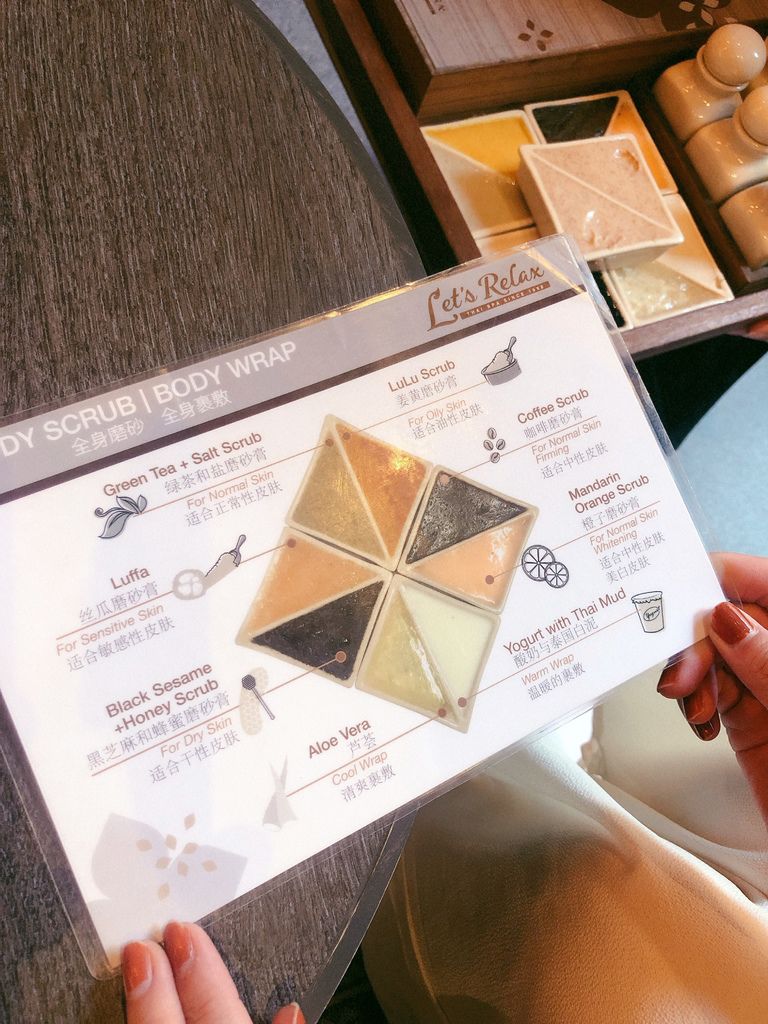 Let's Relax
THAI SPA SINCE 1998
DY SCRUB | BODY WRAP
全身磨砂 全身裹敷
Green Tea + Salt Scrub
绿茶和盐磨砂膏
For Normal Skin
适合正常性皮肤
LuLu Scrub
姜黄磨砂膏
For Oily Skin
适合油性皮肤
Coffee Scrub
咖啡磨砂膏
For Normal Skin
Firming
适合中性皮肤
Mandarin
Orange Scrub
橙子磨砂膏
For Normal Skin
Whitening
适合中性皮肤
美白皮肤
Luffa
丝瓜磨砂膏
For Sensitive Skin
适合敏感性皮肤
Yogurt with Thai Mud
酸奶与泰国白泥
Warm Wrap
温暖的裹敷
Yogurt
Black Sesame
+Honey Scrub
黑芝麻和蜂蜜磨砂膏
For Dry Skin
适合干性皮肤
Aloe Vera
芦荟
Cool Wrap
清爽裹敷